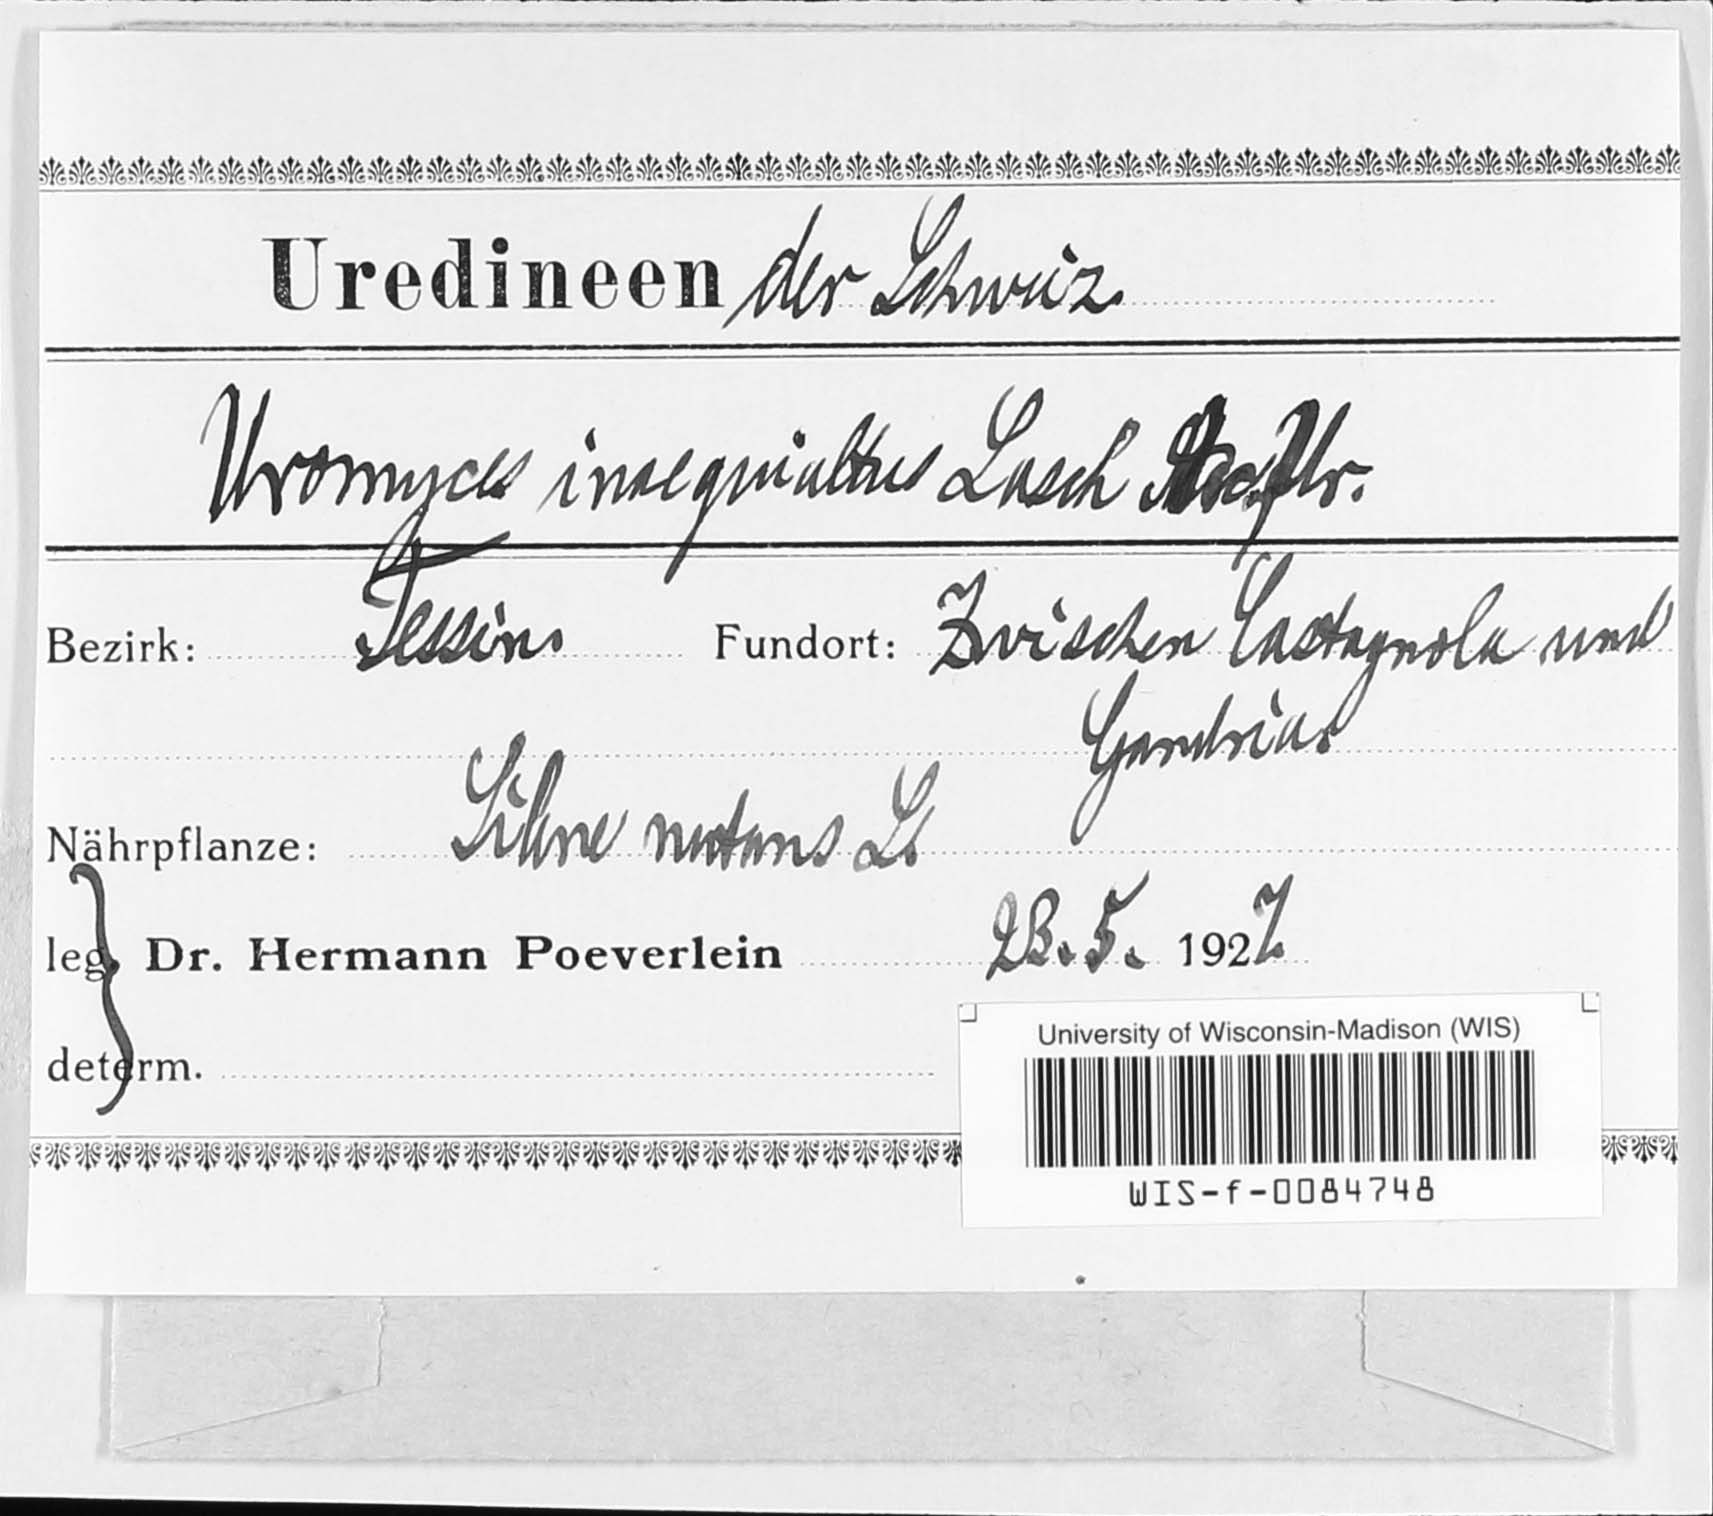 Uredineen der Schweiz.
Uromyces inaequialtus Lasch Ur.
Bezirk: Tessin. Fundort: Zwischen Castagnola und
Gandria.
Nährpflanze: Silene nutans L.
leg. Dr. Hermann Poeverlein 23.5. 1927.
determ.
University of Wisconsin-Madison (WIS)
WIS-f-0084748